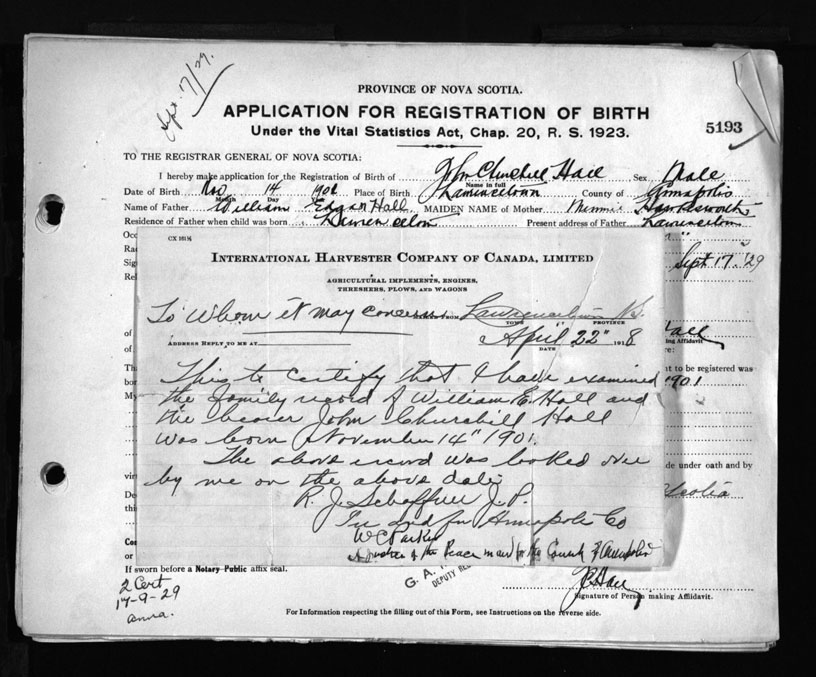 Sept. 17/29.
PROVINCE OF NOVA SCOTIA.
APPLICATION FOR REGISTRATION OF BIRTH
Under the Vital Statistics Act, Chap. 20, R. S. 1923.
5193
TO THE REGISTRAR GENERAL OF NOVA SCOTIA:
I hereby make application for the Registration of Birth of John Churchill Hall Sex Male
Name in full
Date of Birth Nov 14 1901 Place of Birth Lawrencetown County of Annapolis
Month Day
Name of Father William Edgar Hall MAIDEN NAME of Mother Minnie Hawkesworth
Residence of Father when child was born Lawrencetown Present address of Father Lawrencetown
Occ
Rac
Sig Sept 17. '29
Rel
CX 101½
INTERNATIONAL HARVESTER COMPANY OF CANADA, LIMITED
AGRICULTURAL IMPLEMENTS, ENGINES,
THRESHERS, PLOWS, AND WAGONS
To Whom it may concern FROM Lawrencetown N.S.
TOWN PROVINCE
ADDRESS REPLY TO ME AT April 22" 1918
DATE
of Hall
ing Affidavit
of re:
Tha nt to be registered was
This to certify that I have examined
bor 1901
the family record of William E. Hall and
the bearer John Churchill Hall
was born November 14" 1901.
The above record was looked over
de under oath and by
by me on the above date
virt
Scotia
R. J. Schaffner J. P.
In and for Annapolis Co
W C Parker
A Justice of the Peace in and for the County of Annapolis
If sworn before a Notary Public affix seal.
G. A.
DEPUTY RE
2 Cert
17-9-29
anna.
J C Hall
Signature of Person making Affidavit.
For Information respecting the filling out of this Form, see Instructions on the reverse side.